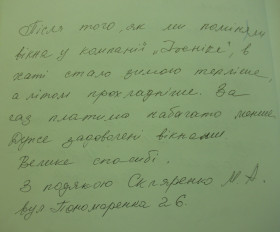 Після того, як ми поміняли
вікна у компанії „
хаті стало зимою тепліше,
а літом прохладніше. За
газ платимо набагато менше.
Дуже задоволені вікнами.
Велике спасибі.
З подякою Скляренко М. А.
вул Пономаренка 26.